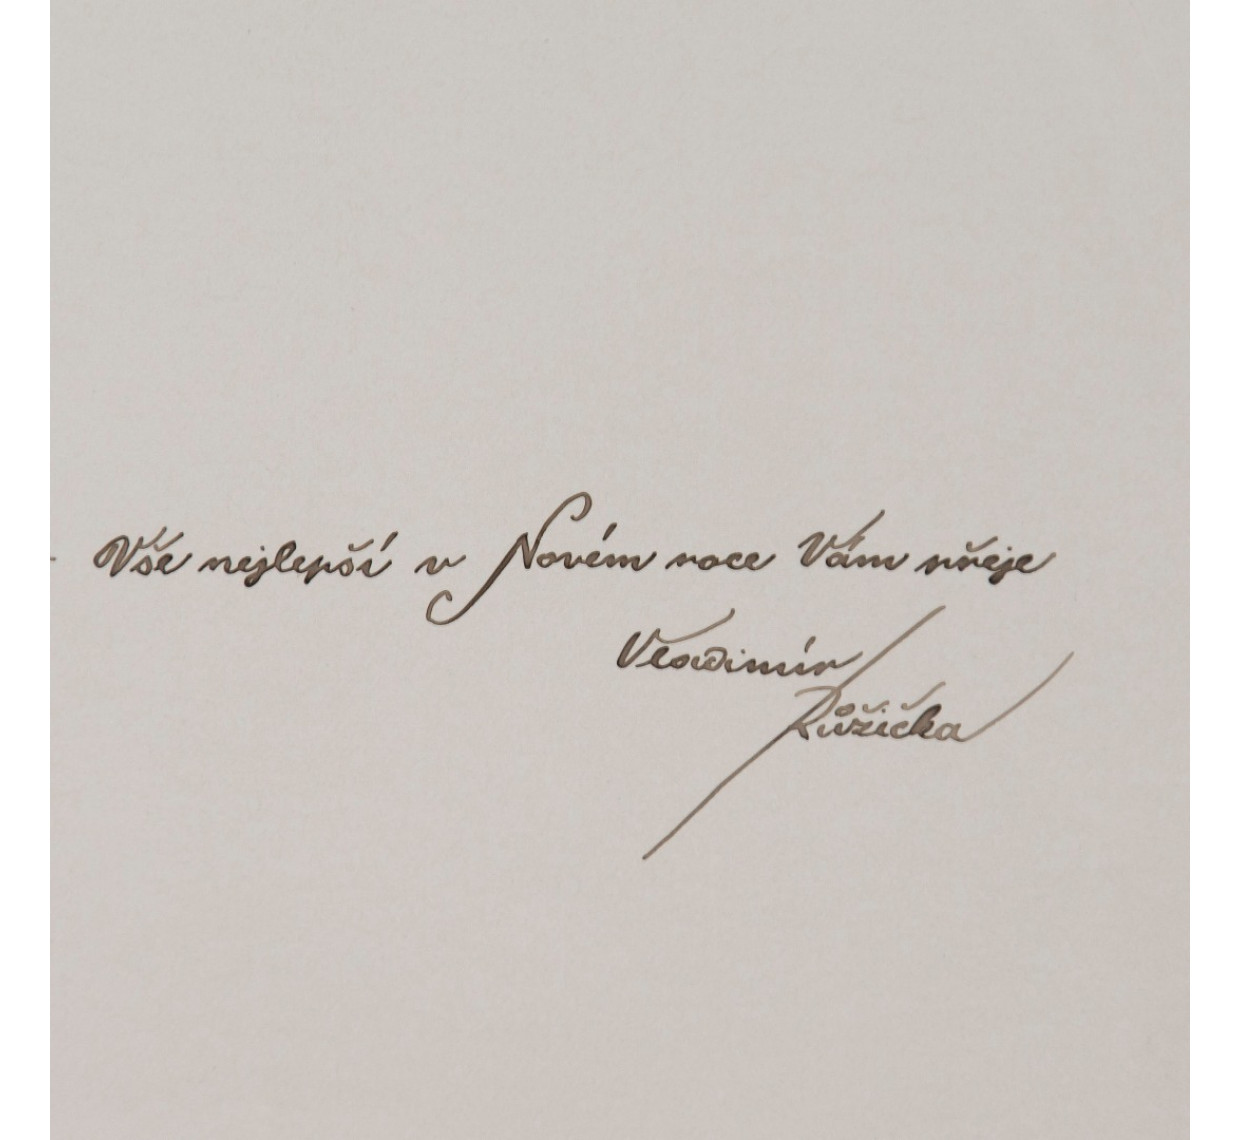 Vše nejlepší v Novém roce Vám přeje
Vladimír
Růžička